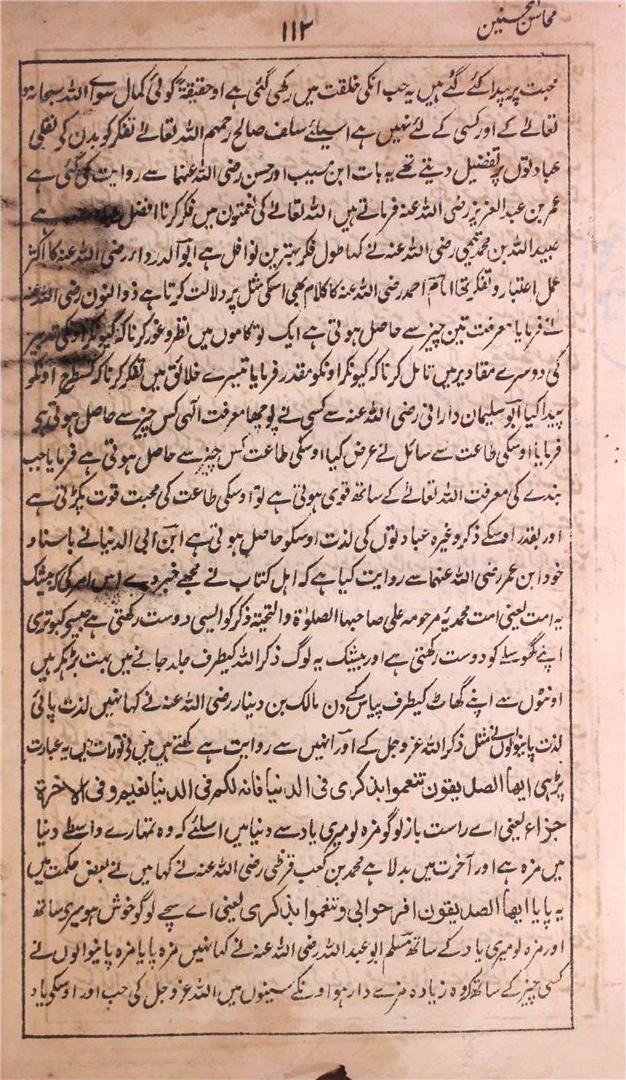 محاسن المحسنین
۱۱۲
محبت پر پیدا کئے گئے ہیں یہ حب انکی خلقت میں رکھی گئی ہے اور حقیقۃً کوئی کمال سواے اللہ سبحانہ و
تعالےٰ کے اور کسی کے لئے نہیں ہے اسیلئے سلف صالح رحمہم اللہ تعالےٰ تفکر کو بدن کی نفلی
عبادتوں پر تفضیل دیتے تھے یہ بات ابن مسیب اور حسن رضی اللہ عنہما سے روایت کی گئی ہے
عمر بن عبد العزیز رضی اللہ عنہ فرماتے ہیں اللہ تعالےٰ کی نعمتوں میں فکر کرنا افضل ہے
عبید اللہ بن محمد تیمی رضی اللہ عنہ نے کہا طول فکر بہترین نوافل ہے ابو الدرداء رضی اللہ عنہ کا اکثر
عمل اعتبار و تفکر تھا امام احمد رضی اللہ عنہ کا کلام بھی اسکی مثل پر دلالت کرتا ہے ذو النون رضی اللہ عنہ
نے فرمایا معرفت تین چیز سے حاصل ہوتی ہے ایک تو کاموں میں نظر و غور کرنا کہ کیونکر اونکی تدبیر
کی دوسرے مقادیر میں تامل کرنا کہ کیونکر اونکو مقدر فرمایا تیسرے خلائق میں تفکر کرنا کہ کسطرح اونکو
پیدا کیا ابو سلیمان دارانی رضی اللہ عنہ سے کسی نے پوچھا معرفت الٰہی کس چیز سے حاصل ہوتی ہی
فرمایا اوسکی طاعت سے سائل نے عرض کیا اوسکی طاعت کس چیز سے حاصل ہوتی ہے فرمایا جب
بندے کی معرفت اللہ تعالےٰ کے ساتھ قوی ہوتی ہے تو اوسکی طاعت کی محبت قوت پکڑتی ہے
اور بقدر اوسکے ذکر وغیرہ عبادتوں کی لذت اوسکو حاصل ہوتی ہے ابن ابی الدنیا نے باسناد
خود ابن عمر رضی اللہ عنہما سے روایت کیا ہے کہ اہل کتاب نے مجھے خبر دی اس امر کی کہ بیشک
یہ امت یعنی امت محمدیہ مرحومہ علی صاحبہا الصلوٰۃ والتحیۃ ذکر کو ایسی دوست رکھتی ہے جیسے کبوتری
اپنے گھونسلے کو دوست رکھتی ہے اور بیشک یہ لوگ ذکر اللہ کیطرف جلد جانے میں بہت بڑھکر ہیں
اونٹوں سے اپنے گھاٹ کیطرف پیاس کے دن مالک بن دینار رضی اللہ عنہ نے کہا نہیں لذت پائی
لذت پانیوالوں نے مثل ذکر اللہ عزوجل کے اور انہیں سے روایت ہے کہتے ہیں میں نے تورات میں یہ عبارت
پڑہی ایھا الصدیقون تنعموا بذکری فی الدنیا فانہ لکم فی الدنیا نعیم و فی الاخرۃ
جزاء یعنی اے راست باز لوگو مزہ لو میری یاد سے دنیا میں اسلئے کہ وہ تمہارے واسطے دنیا
میں مزہ ہے اور آخرت میں بدلا ہے محمد بن کعب قرظی رضی اللہ عنہ نے کہا میں نے بعض حکمت میں
یہ پایا ایھا الصدیقون افرحوا بی و تنعموا بذکری یعنی اے سچے لوگو خوش ہو میری ساتھ
اور مزہ لو میری یاد کے ساتھ مسلم ابو عبد اللہ رضی اللہ عنہ نے کہا نہیں مزہ پایا مزہ پانیوالوں نے
کسی چیز کے ساتھ کہ وہ زیادہ مزے دار ہو اونکے سینوں میں اللہ عزوجل کی حب اور اوسکی یاد